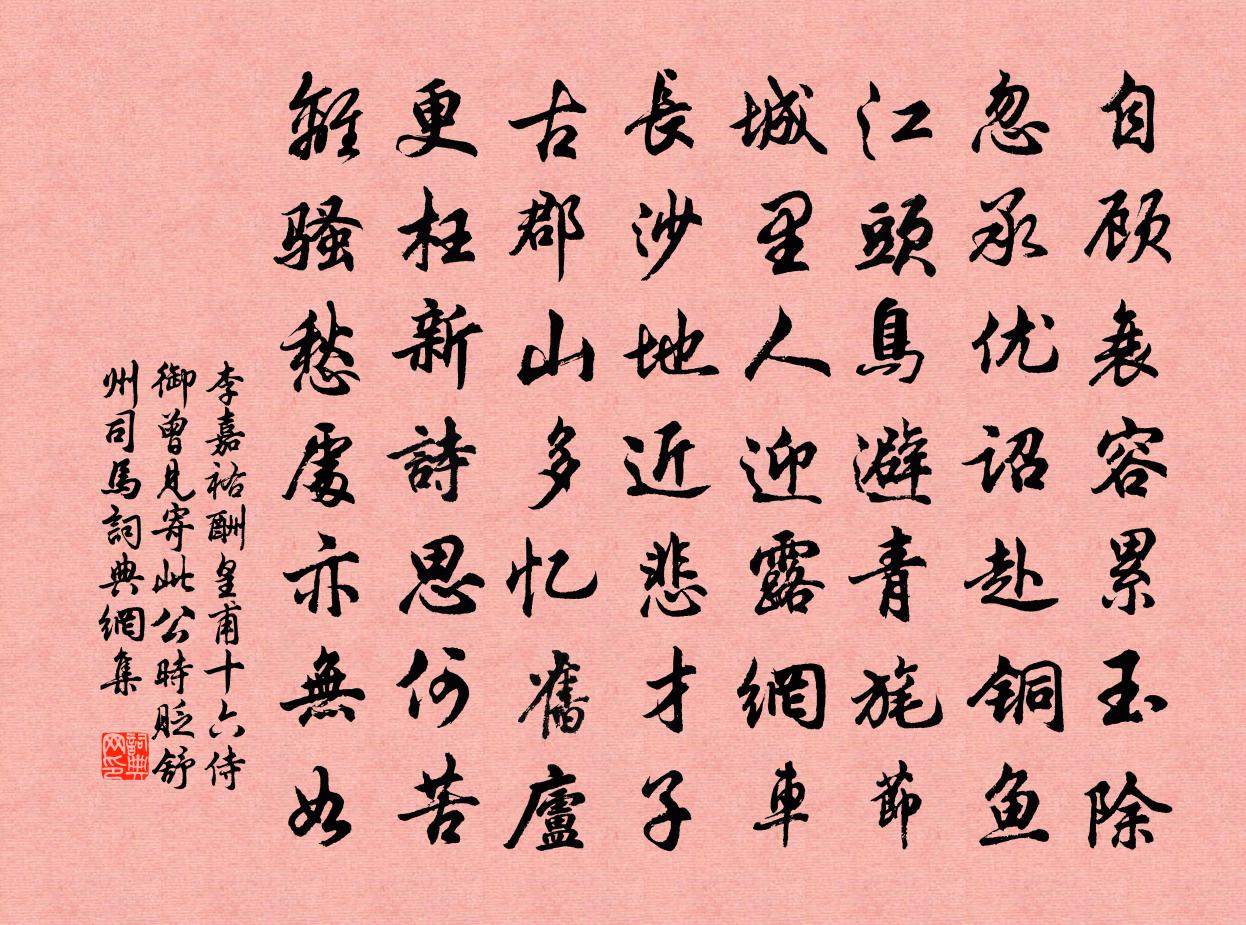 自顾衰容累玉除
忽承优诏赴铜鱼
江頭鳥避青旄節
城里人迎露網車
長沙地近悲才子
古郡山多忆舊廬
更枉新詩思何苦
離騷愁處亦無如
李嘉祐酬皇甫十六侍
御曾見寄此公時貶舒
州司馬詞典網集
詞典
网印